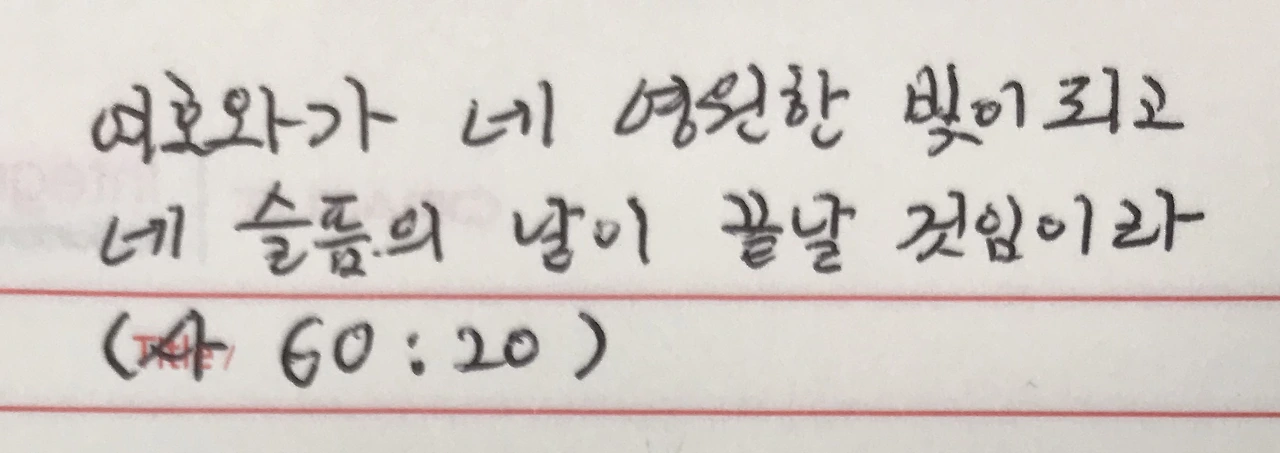 여호와가 네 영원한 빛이 되고
네 슬픔의 날이 끝날 것임이라
Title/
(사 60:20)